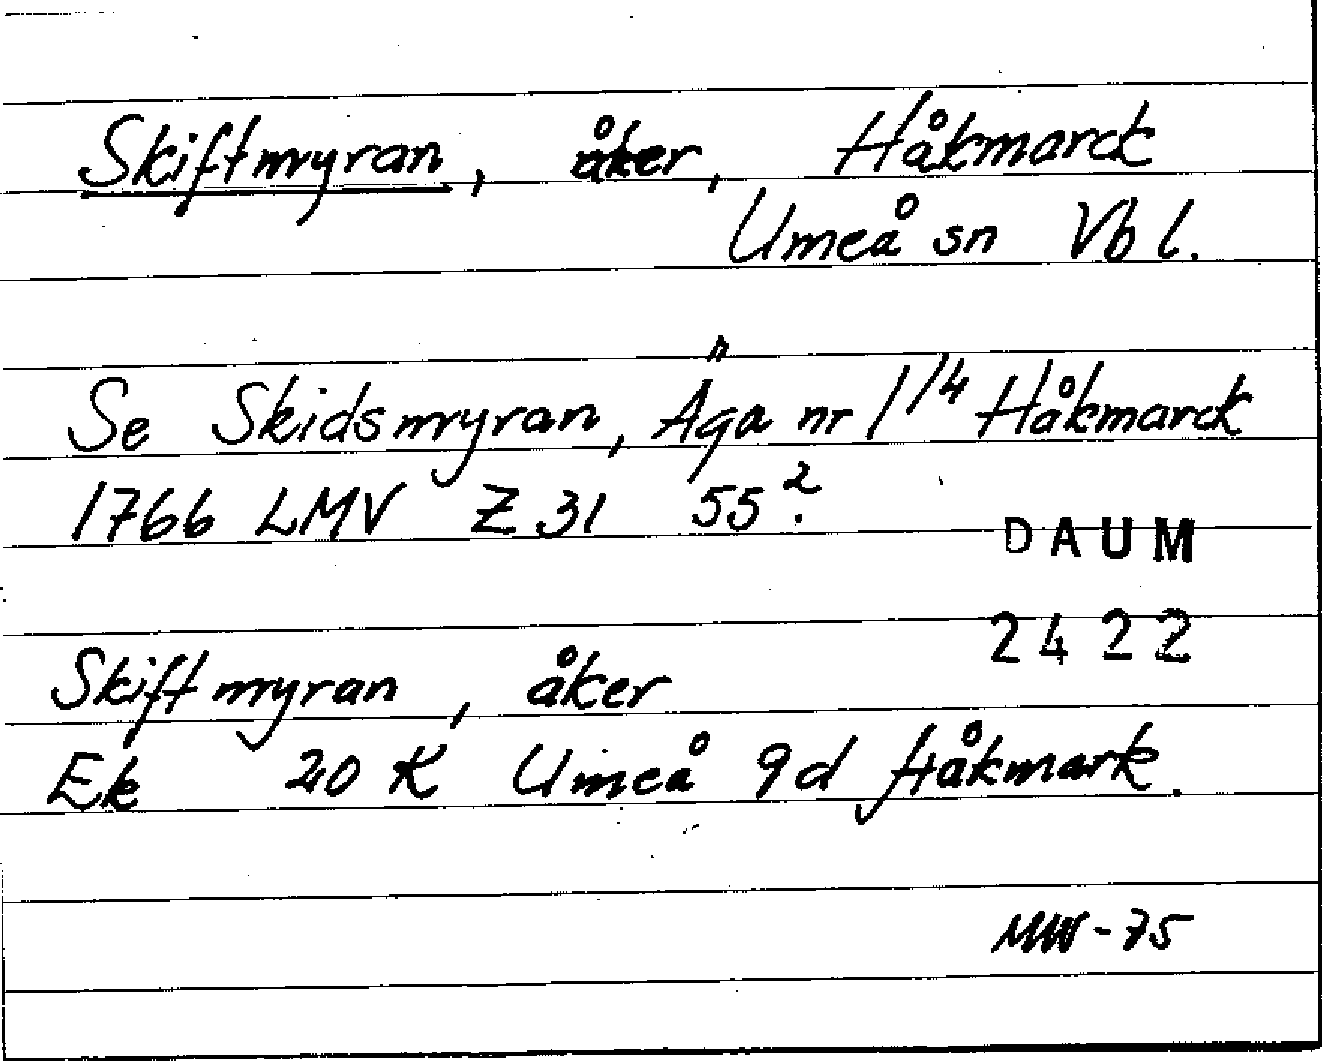 Skiftmyran, åker, Håkmarck
Umeå sn Vb l.
Se Skidsmyran, Äga nr 1 1/4 Håkmarck
1766 LMV Z 31 55².
DAUM
2422
Skiftmyran, åker
Ek 20 K Umeå 9d Håkmark.
MW-75